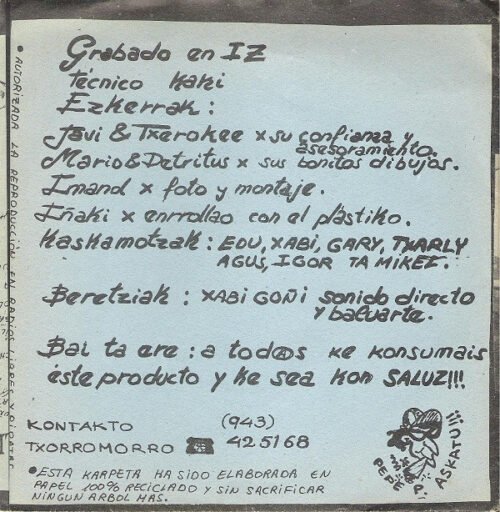 Grabado en IZ
Técnico Kaki
Ezkerrak:
Javi & Txerokee x su confianza y
asesoramiento.
Mario & Detritus x sus bonitos dibujos.
Imanol x foto y montaje.
Iñaki x enrrollao con el plástiko.
Kaskamotzak: EDU, XABI, GARY, TXARLY
AGUS, IGOR TA MIKEL.
Beretziak: XABI GOÑI sonido directo
y baluarte.
Bai ta ere: a tod@s ke konsumais
éste producto y ke sea kon SALUZ!!!
KONTAKTO (943)
TXORROMORRO ☎ 425168
PEPE
ASKATU!!!
• ESTA KARPETA HA SIDO ELABORADA EN
PAPEL 100% RECICLADO Y SIN SACRIFICAR
NINGUN ARBOL MAS.
• AUTORIZADA LA REPRODUCCIÓN EN RADIOS LIBRES Y PIRATAS